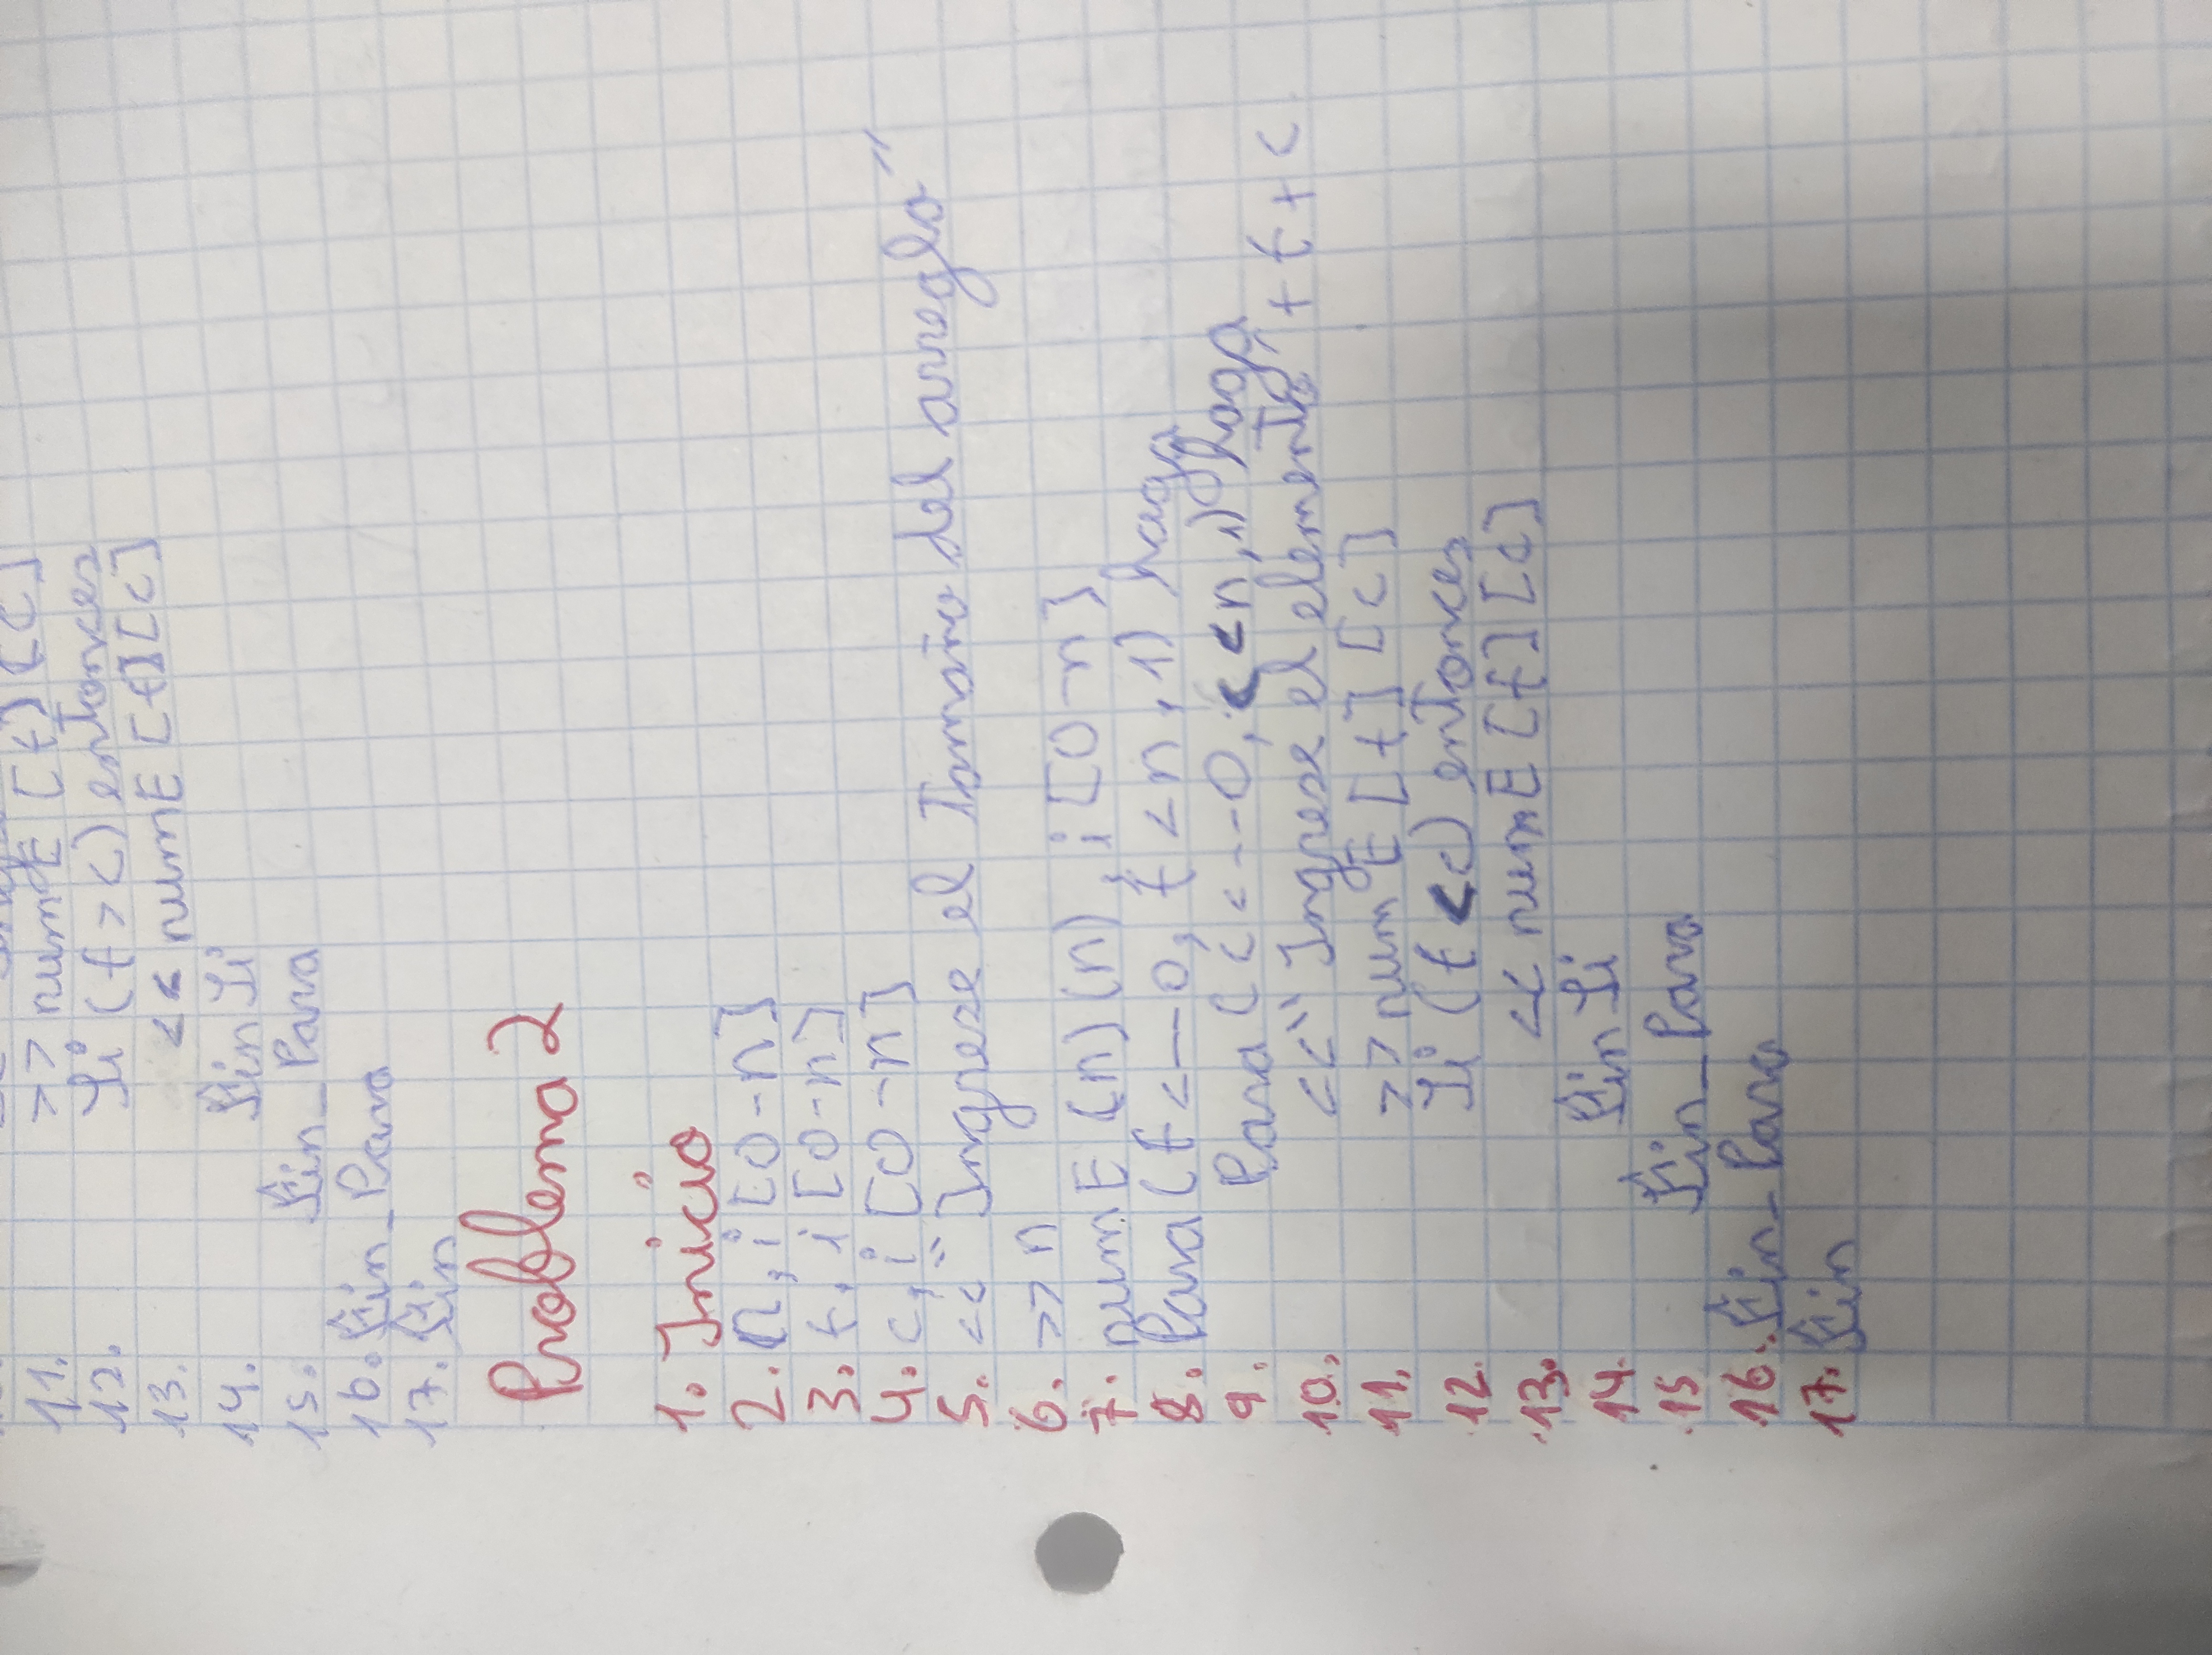 11. >> numE [f] [c]
12. Si (f > c) entonces
13. << numE [f] [c]
14. Fin_Si
15. Fin_Para
16. Fin_Para
17. Fin
Problema 2
1. Inicio
2. n, i [0-n]
3. f, i [0-n]
4. c, i [0-n]
5. << "Ingrese el Tamaño del arreglo"
6. >> n
7. numE (n) (n), i [0-n]
8. Para (f <-- 0, f < n, 1) haga
9. Para (c <-- 0, c < n, 1) haga
10. << "Ingrese el elemento" + f + c
11. >> numE [f] [c]
12. Si (f < c) entonces
13. << numE [f] [c]
14. Fin_Si
15 Fin_Para
16. Fin_Para
17. Fin